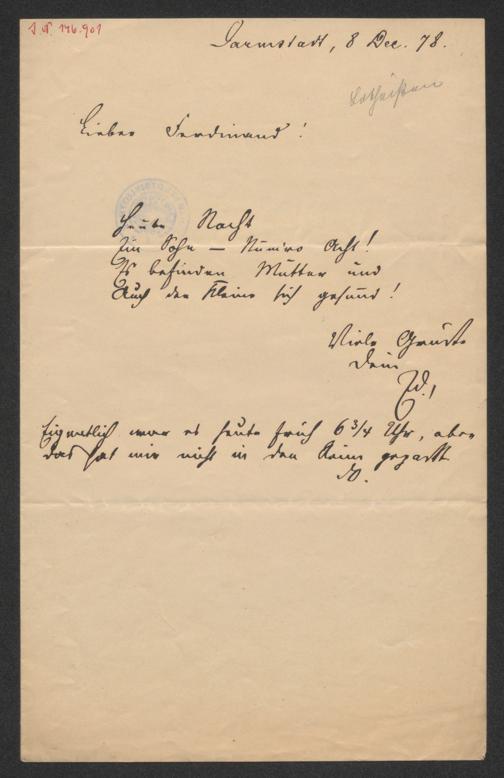 J. N. 146.901
Darmstadt, 8 Dec. 78.
Lotheißen
Lieber Ferdinand!
Heute Nacht
Ein Sohn – Numero Acht!
Es befinden Mutter und
Auch der Kleine sich gesund!
Viele Grüße
Dein
Ed.
Eigentlich war es heute früh 6 3/4 Uhr, aber
das hat mir nicht in den Reim gepaßt